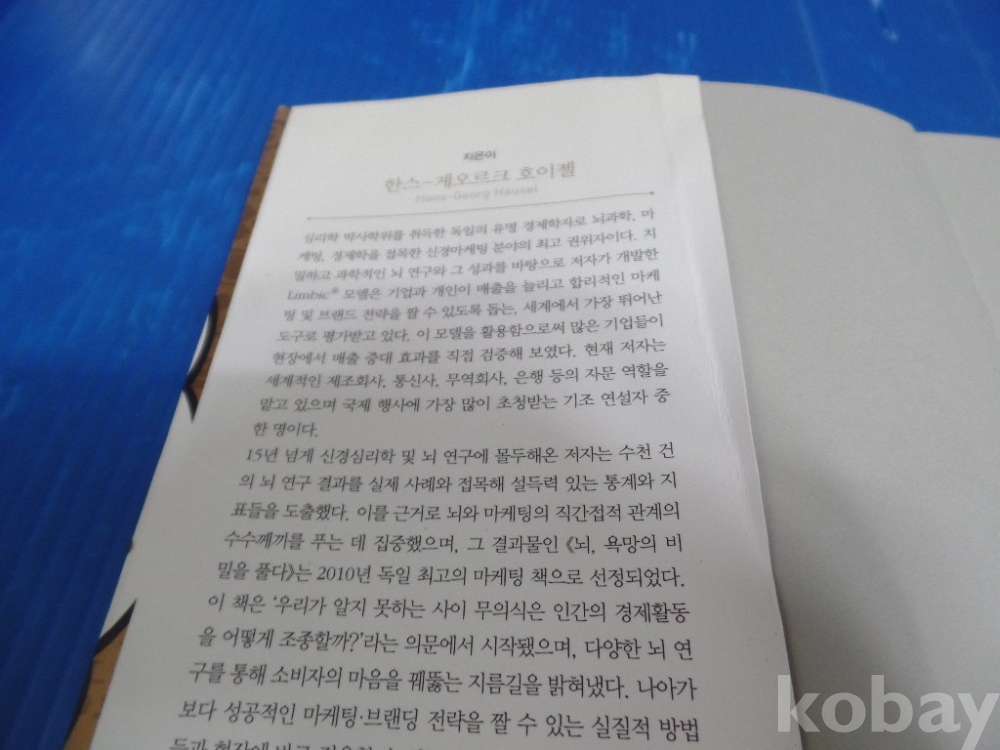 지은이
한스-게오르크 호이젤
Hans-Georg Häusel
심리학 박사학위를 취득한 독일의 유명 경제학자로 뇌과학, 마
케팅, 경제학을 접목한 신경마케팅 분야의 최고 권위자이다. 치
밀하고 과학적인 뇌 연구와 그 성과를 바탕으로 저자가 개발한
Limbic® 모델은 기업과 개인이 매출을 늘리고 합리적인 마케
팅 및 브랜드 전략을 짤 수 있도록 돕는, 세계에서 가장 뛰어난
도구로 평가받고 있다. 이 모델을 활용함으로써 많은 기업들이
현장에서 매출 증대 효과를 직접 검증해 보였다. 현재 저자는
세계적인 제조회사, 통신사, 무역회사, 은행 등의 자문 역할을
맡고 있으며 국제 행사에 가장 많이 초청받는 기조 연설자 중
한 명이다.
15년 넘게 신경심리학 및 뇌 연구에 몰두해온 저자는 수천 건
의 뇌 연구 결과를 실제 사례와 접목해 설득력 있는 통계와 지
표들을 도출했다. 이를 근거로 뇌와 마케팅의 직간접적 관계의
수수께끼를 푸는 데 집중했으며, 그 결과물인 《뇌, 욕망의 비
밀을 풀다》는 2010년 독일 최고의 마케팅 책으로 선정되었다.
이 책은 ‘우리가 알지 못하는 사이 무의식은 인간의 경제활동
을 어떻게 조종할까?’라는 의문에서 시작됐으며, 다양한 뇌 연
구를 통해 소비자의 마음을 꿰뚫는 지름길을 밝혀냈다. 나아가
보다 성공적인 마케팅·브랜딩 전략을 짤 수 있는 실질적 방법
kobay